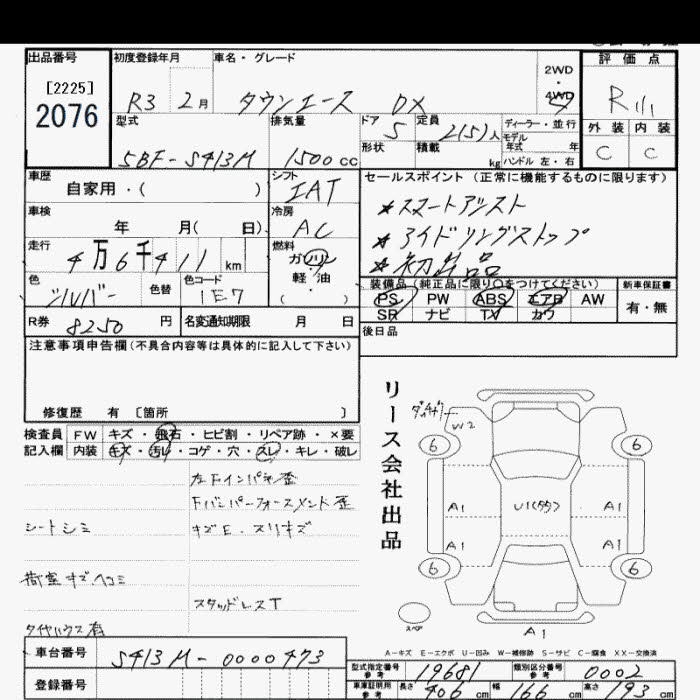 出品番号
[2225]
2076
初度登録年月
R3 2月
車名・グレード
タウンエース DX
2WD
・
4WD
評価点
R
外装 内装
C C
型式
5BF-S413M
排気量
1500cc
ドア 5
形状
定員 2(5)人
積載 kg
ディーラー・並行
モデル年式 年
ハンドル 左・右
車歴
自家用・( )
シフト
IAT
車検
年 月( 日)
冷房
AC
走行
4万6千411km
燃料
ガソリン
軽・油
( )
色
シルバー
色替
色コード
1E7
セールスポイント (正常に機能するものに限ります)
*スマートアシスト
*アイドリングストップ
*初出品
装備品 (純正品に限り○をつけてください)
PS PW ABS エアB AW
SR ナビ TV カワ
新車保証書
有・無
R券 8250円
名変通知期限 月 日
後日品
注意事項申告欄(不具合内容等は具体的に記入して下さい)
修復歴 有 〔箇所 〕
検査員 FW キズ・飛石・ヒビ割・リペア跡・×要
記入欄 内装 キズ・汚れ・コゲ・穴・スレ・キレ・破レ
左Fインパネ歪
Fバンパーフォースメント歪
シートシミ
キズE・スリキズ
荷室キズ・ヘコミ
スタッドレスT
タイヤハウス有
リース会社出品
W2
6 6
A1 U1(55) A1
A1 A1
6 6
スペア
A1
A-キズ E-エクボ U-凹み W-補修跡 S-サビ C-腐食 XX-交換済
車台番号 S413M-0000473
登録番号
型式指定番号 参考 19681
類別区分番号 参考 0002
車庫証明用 参考 長さ 406cm 幅 166cm 高さ 193cm